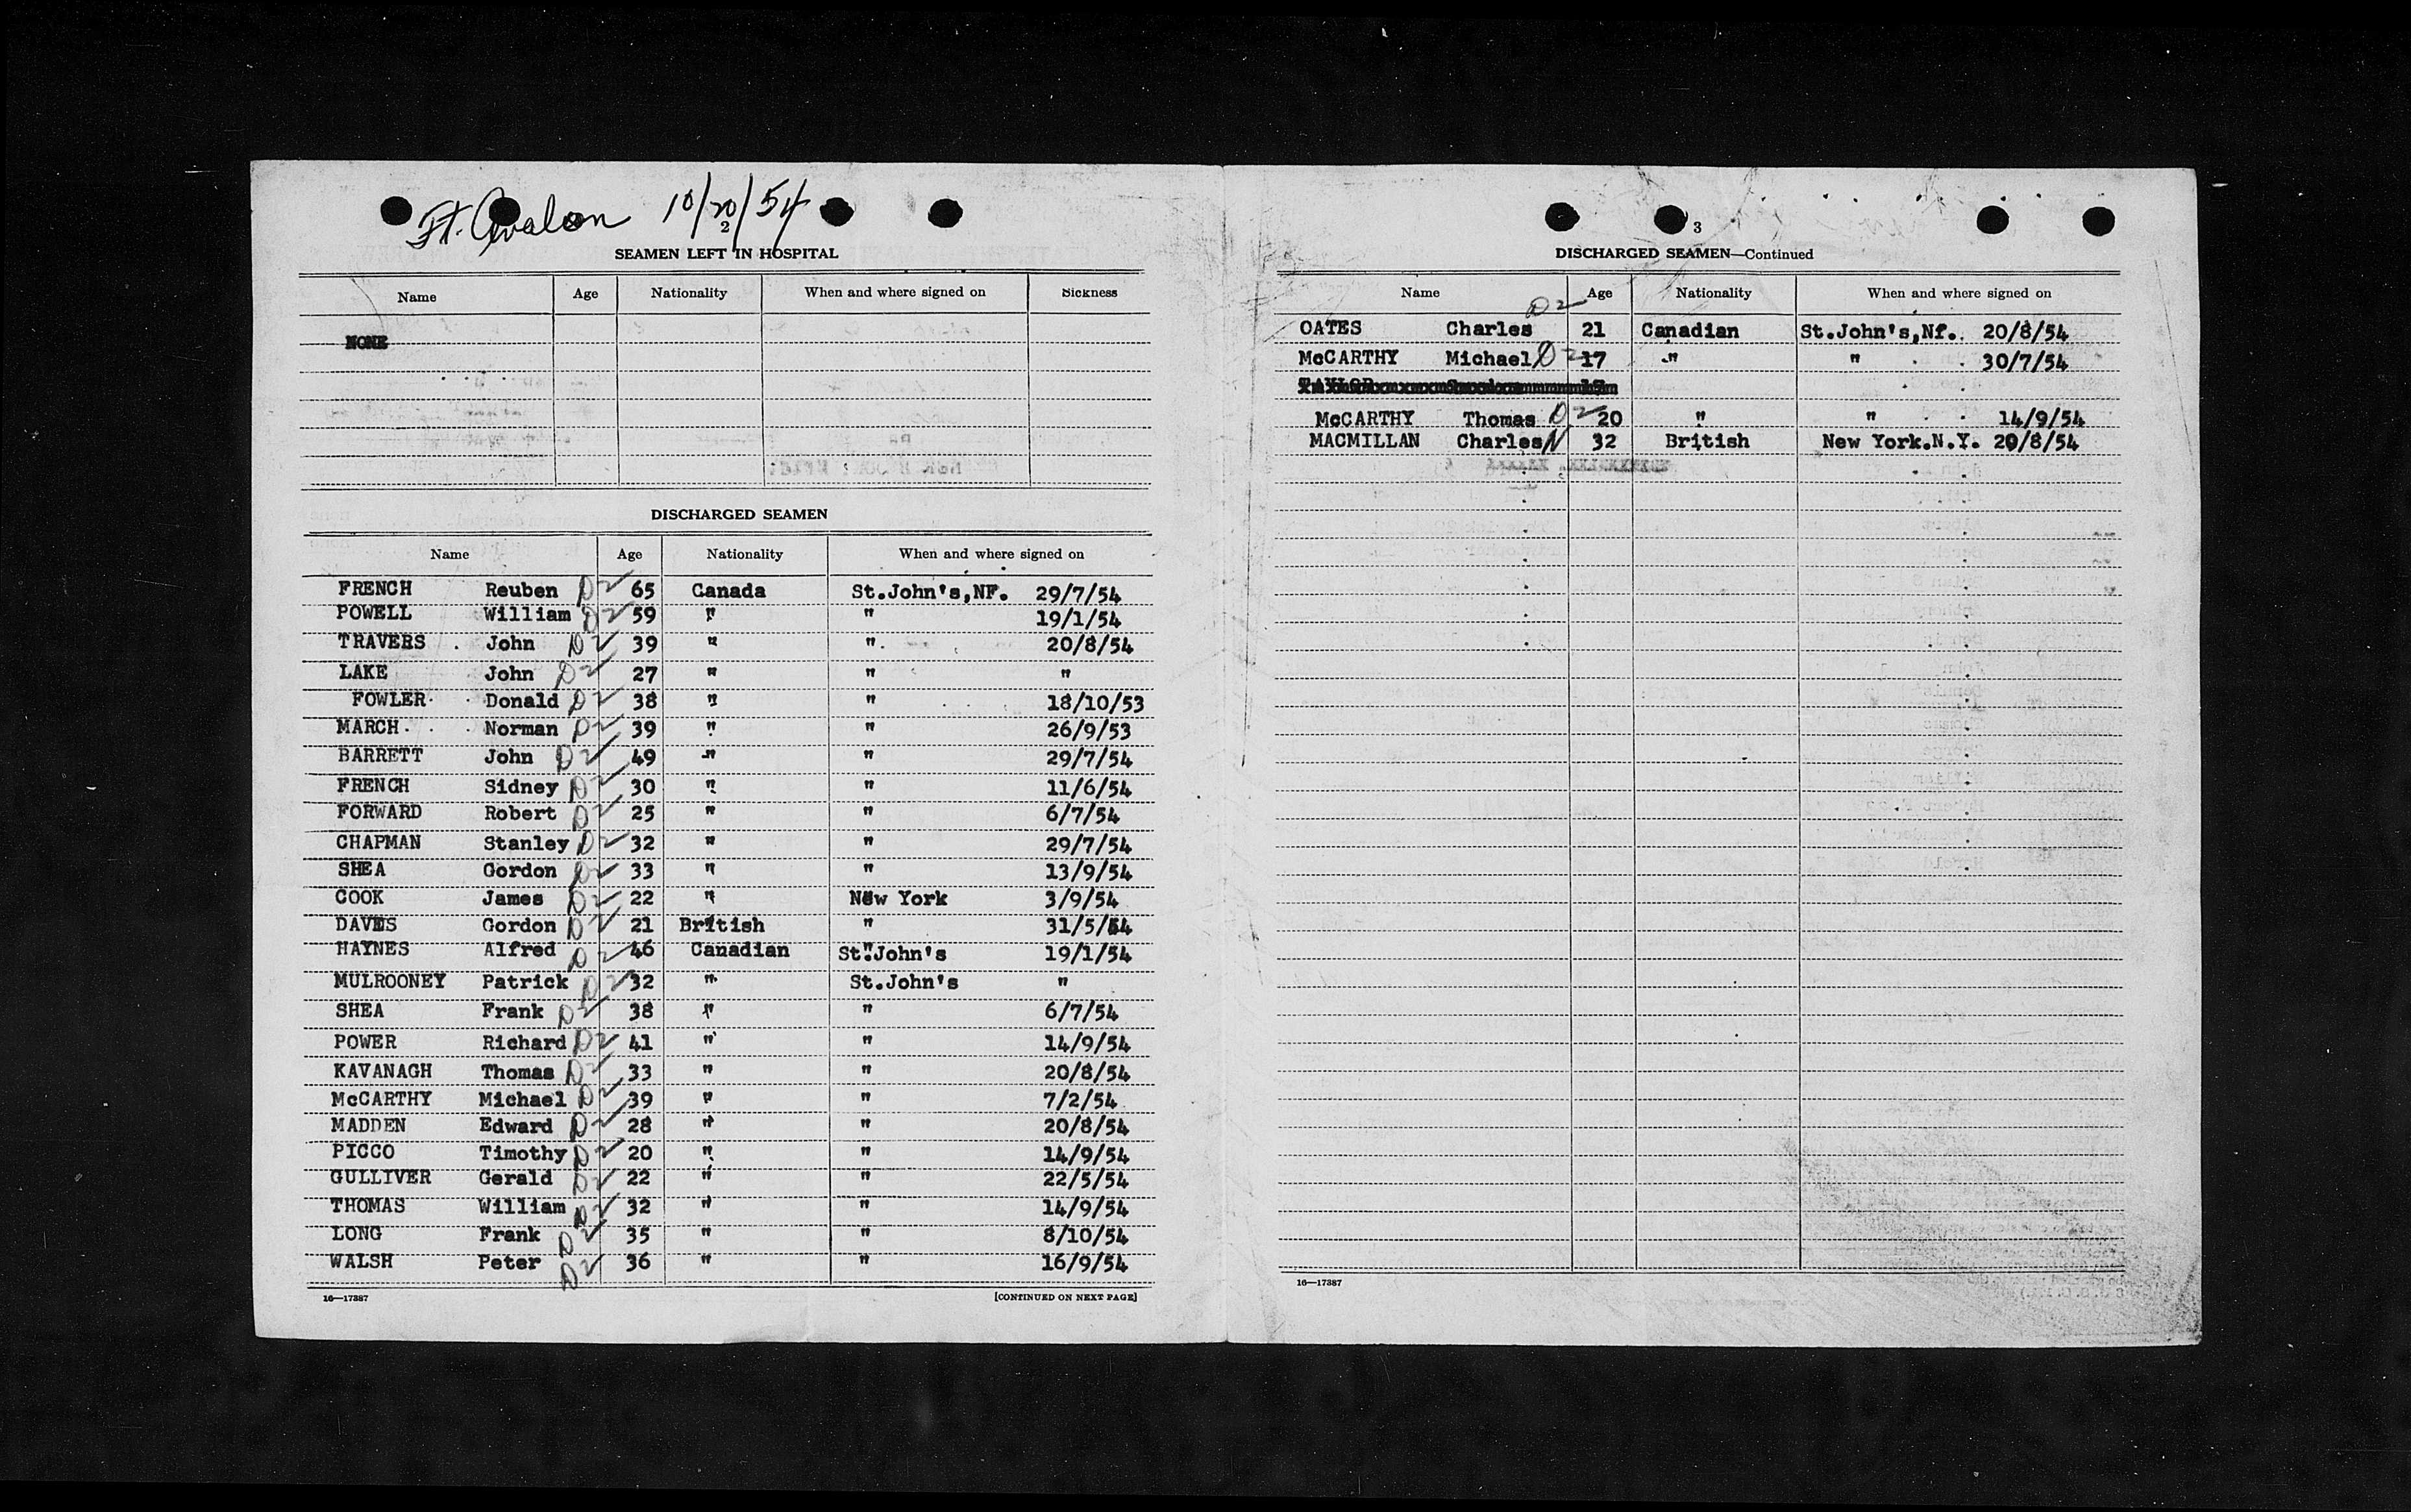 Ft. Avalon 10/20/54
2
SEAMEN LEFT IN HOSPITAL
Name Age Nationality When and where signed on Sickness
NONE
DISCHARGED SEAMEN
Name Age Nationality When and where signed on
FRENCH Reuben D2 65 Canada St.John's,NF. 29/7/54
POWELL William D2 59 " " 19/1/54
TRAVERS John D2 39 " " 20/8/54
LAKE John D2 27 " " "
FOWLER Donald D2 38 " " 18/10/53
MARCH Norman D2 39 " " 26/9/53
BARRETT John D2 49 " " 29/7/54
FRENCH Sidney D2 30 " " 11/6/54
FORWARD Robert D2 25 " " 6/7/54
CHAPMAN Stanley D2 32 " " 29/7/54
SHEA Gordon D2 33 " " 13/9/54
COOK James D2 22 " New York 3/9/54
DAVIES Gordon D2 21 British " 31/5/54
HAYNES Alfred D2 46 Canadian St.John's 19/1/54
MULROONEY Patrick D2 32 " St.John's "
SHEA Frank D2 38 " " 6/7/54
POWER Richard D2 41 " " 14/9/54
KAVANAGH Thomas D2 33 " " 20/8/54
McCARTHY Michael D2 39 " " 7/2/54
MADDEN Edward D2 28 " " 20/8/54
PICCO Timothy D2 20 " " 14/9/54
GULLIVER Gerald D2 22 " " 22/5/54
THOMAS William D2 32 " " 14/9/54
LONG Frank D2 35 " " 8/10/54
WALSH Peter D2 36 " " 16/9/54
16—17387 [CONTINUED ON NEXT PAGE]
3
DISCHARGED SEAMEN—Continued
Name Age Nationality When and where signed on
OATES Charles D2 21 Canadian St.John's,Nf. 20/8/54
McCARTHY Michael D2 17 " " 30/7/54
McCARTHY Thomas D2 20 " " 14/9/54
MACMILLAN Charles N 32 British New York.N.Y. 20/8/54
16—17387